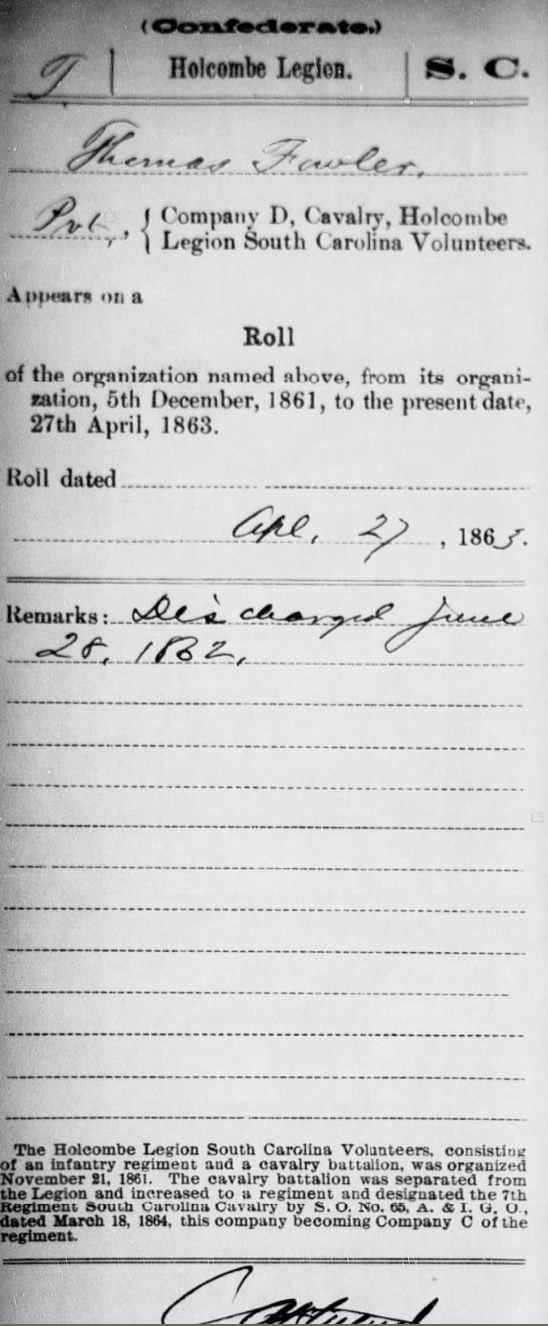 (Confederate.)
Holcombe Legion. | S. C.
Thomas Fowler.
Pvt., { Company D, Cavalry, Holcombe
Legion South Carolina Volunteers.
Appears on a
Roll
of the organization named above, from its organi-
zation, 5th December, 1861, to the present date,
27th April, 1863.
Roll dated
Apl. 27, 1863.
Remarks: Discharged June
28, 1862.
The Holcombe Legion South Carolina Volunteers, consisting
of an infantry regiment and a cavalry battalion, was organized
November 21, 1861. The cavalry battalion was separated from
the Legion and increased to a regiment and designated the 7th
Regiment South Carolina Cavalry by S. O. No. 65, A. & I. G. O.,
dated March 18, 1864, this company becoming Company C of the
regiment.